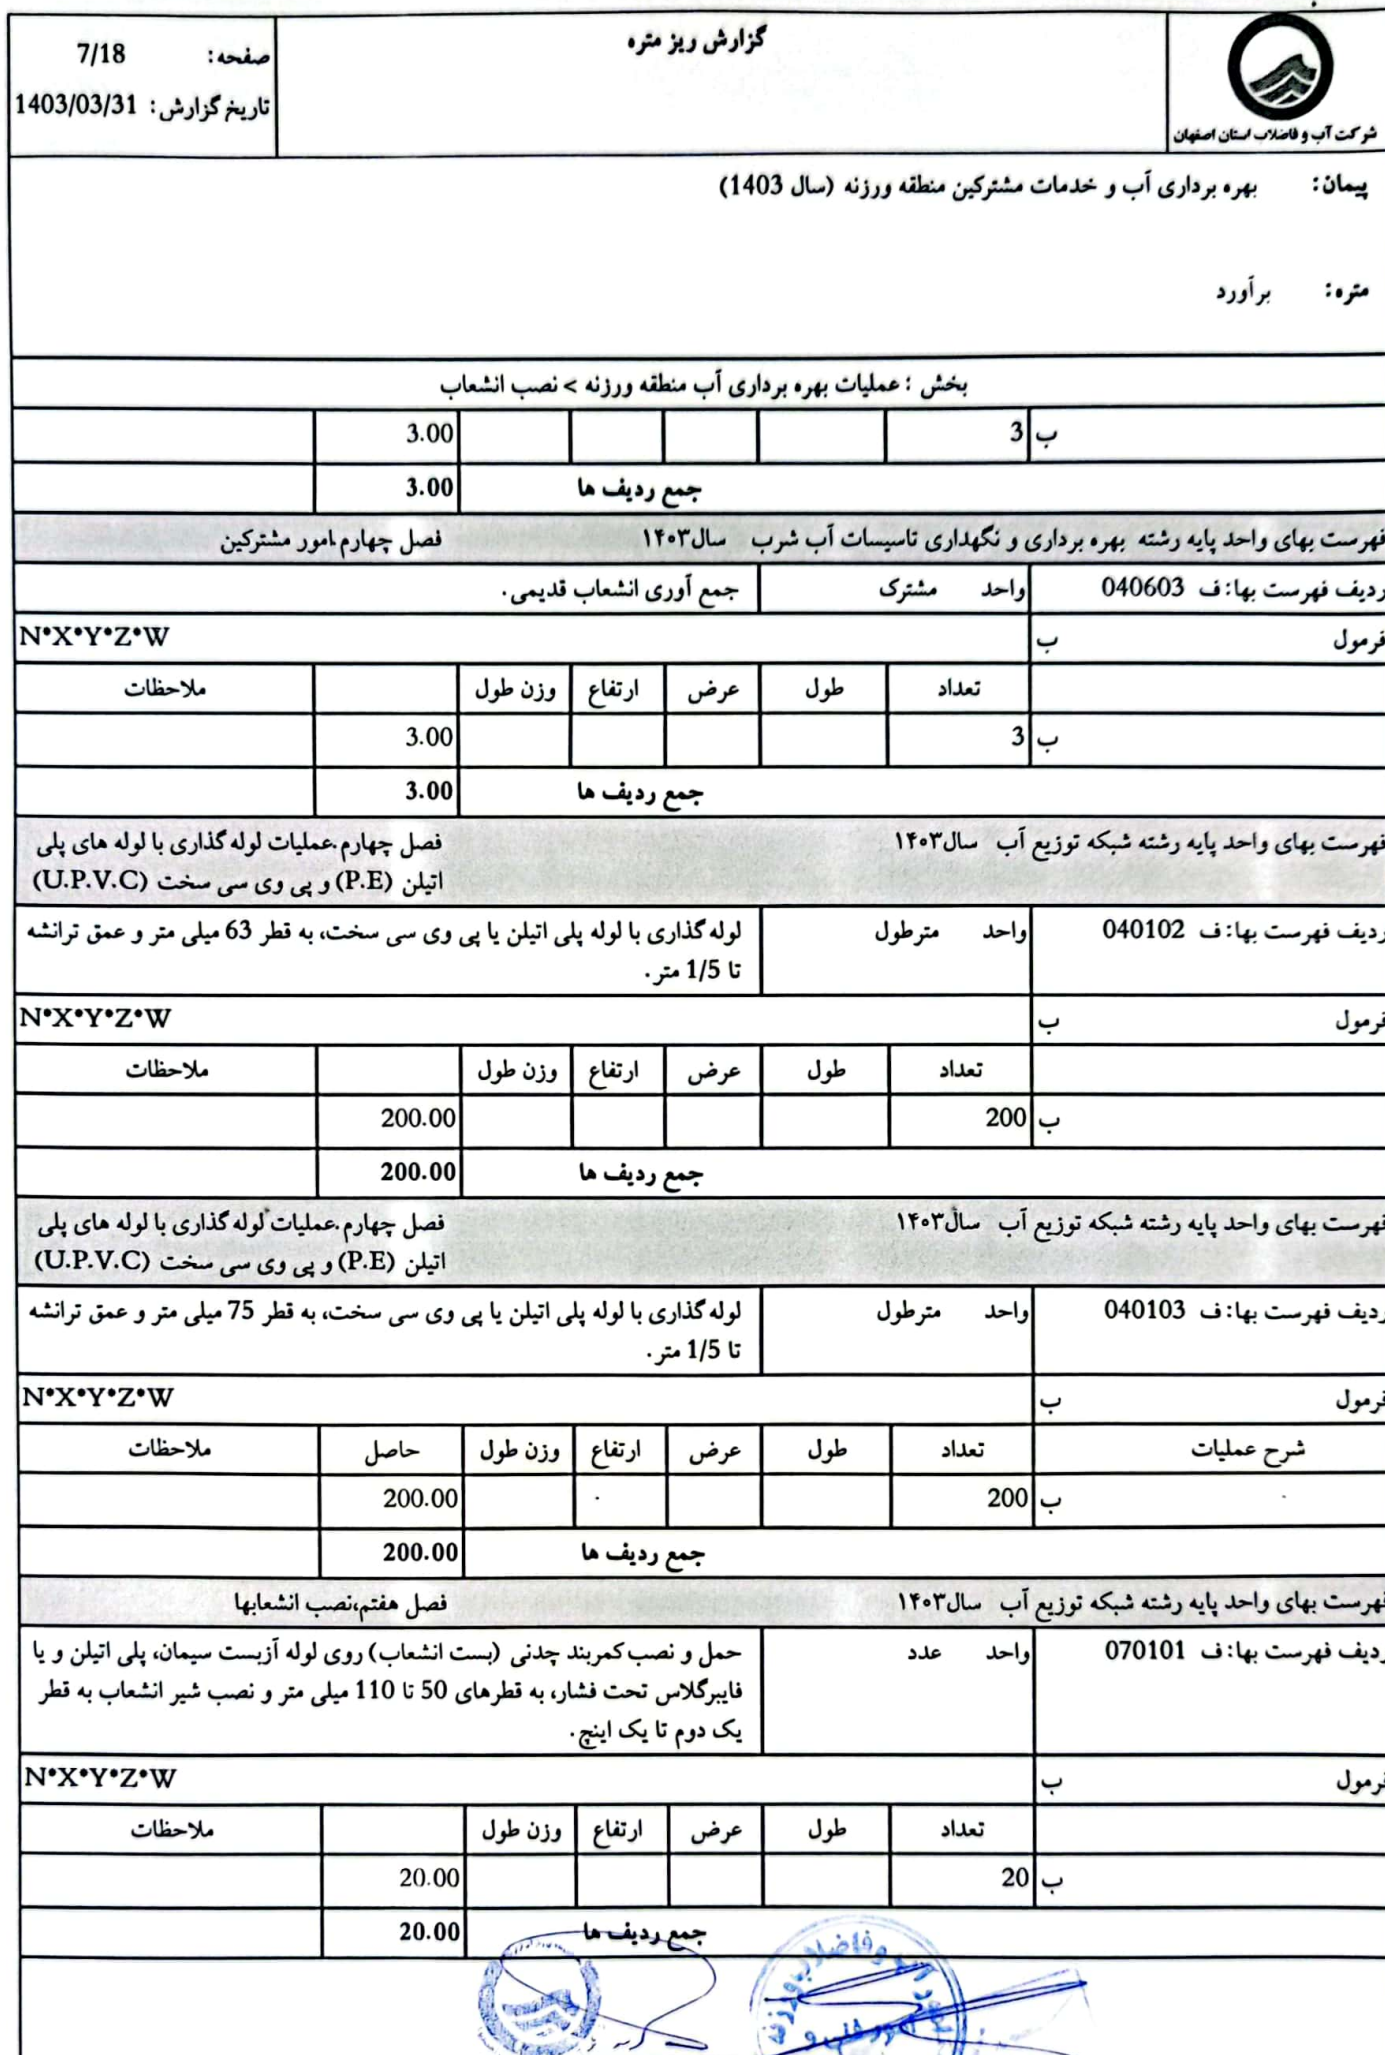 گزارش ریز متره
صفحه: 7/18
تاریخ گزارش: 1403/03/31
شرکت آب و فاضلاب استان اصفهان
پیمان: بهره برداری آب و خدمات مشترکین منطقه ورزنه (سال 1403)
متره: برآورد
بخش : عملیات بهره برداری آب منطقه ورزنه > نصب انشعاب
ب 3 3.00
جمع ردیف ها 3.00
فهرست بهای واحد پایه رشته بهره برداری و نگهداری تاسیسات آب شرب سال۱۴۰۳ فصل چهارم.امور مشترکین
ردیف فهرست بها: ف 040603 واحد مشترک جمع آوری انشعاب قدیمی.
فرمول ب N*X*Y*Z*W
تعداد طول عرض ارتفاع وزن طول ملاحظات
ب 3 3.00
جمع ردیف ها 3.00
فهرست بهای واحد پایه رشته شبکه توزیع آب سال۱۴۰۳ فصل چهارم.عملیات لوله گذاری با لوله های پلی
اتیلن (P.E) و پی وی سی سخت (U.P.V.C)
ردیف فهرست بها: ف 040102 واحد مترطول لوله گذاری با لوله پلی اتیلن یا پی وی سی سخت، به قطر 63 میلی متر و عمق ترانشه
تا 1/5 متر.
فرمول ب N*X*Y*Z*W
تعداد طول عرض ارتفاع وزن طول ملاحظات
ب 200 200.00
جمع ردیف ها 200.00
فهرست بهای واحد پایه رشته شبکه توزیع آب سال۱۴۰۳ فصل چهارم.عملیات لوله گذاری با لوله های پلی
اتیلن (P.E) و پی وی سی سخت (U.P.V.C)
ردیف فهرست بها: ف 040103 واحد مترطول لوله گذاری با لوله پلی اتیلن یا پی وی سی سخت، به قطر 75 میلی متر و عمق ترانشه
تا 1/5 متر.
فرمول ب N*X*Y*Z*W
شرح عملیات تعداد طول عرض ارتفاع وزن طول حاصل ملاحظات
ب 200 200.00
جمع ردیف ها 200.00
فهرست بهای واحد پایه رشته شبکه توزیع آب سال۱۴۰۳ فصل هفتم.نصب انشعابها
ردیف فهرست بها: ف 070101 واحد عدد حمل و نصب کمربند چدنی (بست انشعاب) روی لوله آزبست سیمان، پلی اتیلن و یا
فایبرگلاس تحت فشار، به قطرهای 50 تا 110 میلی متر و نصب شیر انشعاب به قطر
یک دوم تا یک اینچ.
فرمول ب N*X*Y*Z*W
تعداد طول عرض ارتفاع وزن طول ملاحظات
ب 20 20.00
جمع ردیف ها 20.00
آب و فاضلاب ورزنه